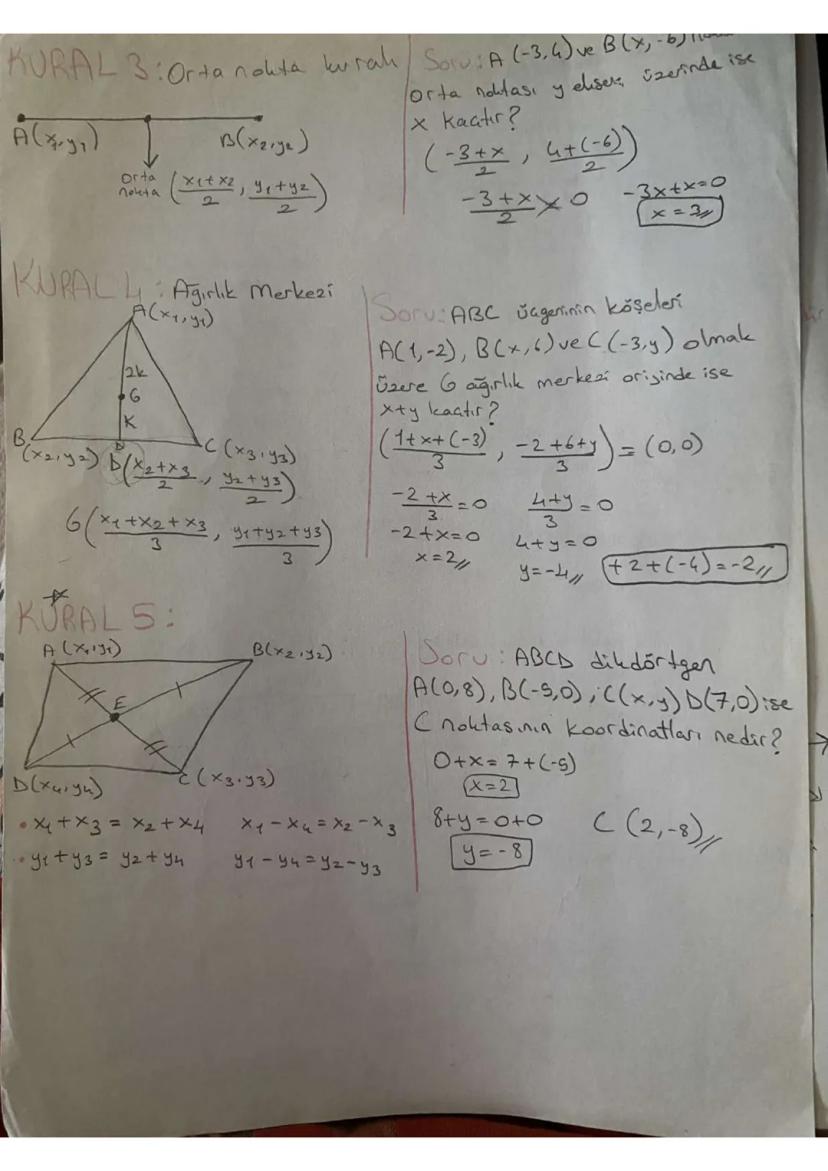 KURAL 3: Orta nokta kuralı
A(x₁,y₁) B(x₂,y₂)
orta nokta (x₁+x₂/2, y₁+y₂/2)
Soru: A(-3,4) ve B(x,-6)
orta noktası y ekseni üzerinde ise
x kaçtır?
(-3+x/2, 4+(-6)/2)
-3+x/2 = 0 -3x+x=0
x=3
KURAL 4: Ağırlık Merkezi
A(x₁,y₁)
2k
G
K
B D C(x₃,y₃)
(x₂,y₂) D(x₂+x₃/2, y₂+y₃/2)
G(x₁+x₂+x₃/3, y₁+y₂+y₃/3)
Soru: ABC üçgeninin köşeleri
A(1,-2), B(x,6) ve C(-3,y) olmak
üzere G ağırlık merkezi orijinde ise
x+y kaçtır?
(1+x+(-3)/3, -2+6+y/3) = (0,0)
-2+x/3=0 4+y/3=0
-2+x=0 4+y=0
x=2 y=-4 +2+(-4)=-2
KURAL 5:
A(x₁,y₁) B(x₂,y₂)
E
D(x₄,y₄) C(x₃,y₃)
• x₁+x₃=x₂+x₄ x₁-x₄=x₂-x₃
• y₁+y₃=y₂+y₄ y₁-y₄=y₂-y₃
Soru: ABCD dikdörtgen
A(0,8), B(-5,0), C(x,y) D(7,0) ise
C noktasının koordinatları nedir?
0+x=7+(-5)
x=2
8+y=0+0 C(2,-8)
y=-8